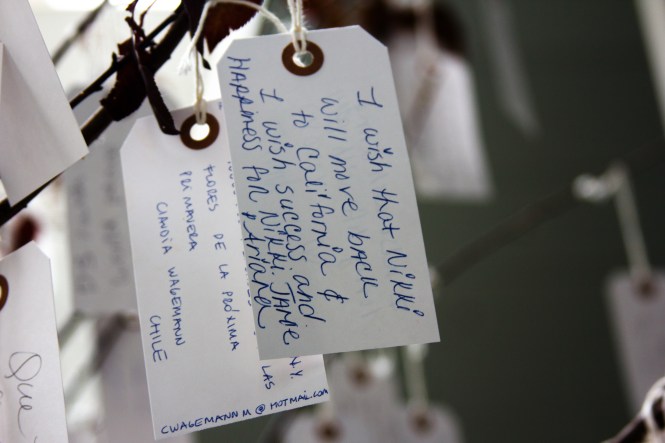 I wish that Nikki
will move back
to California &
I wish success and
Happiness for Nikki, Jamie
& Ariana
Y.
LAS
FLORES DE LA PRÓXIMA
PRIMAVERA
CLAUDIA WAGEMANN
CHILE
CWAGEMANNM@HOTMAIL.COM
Que